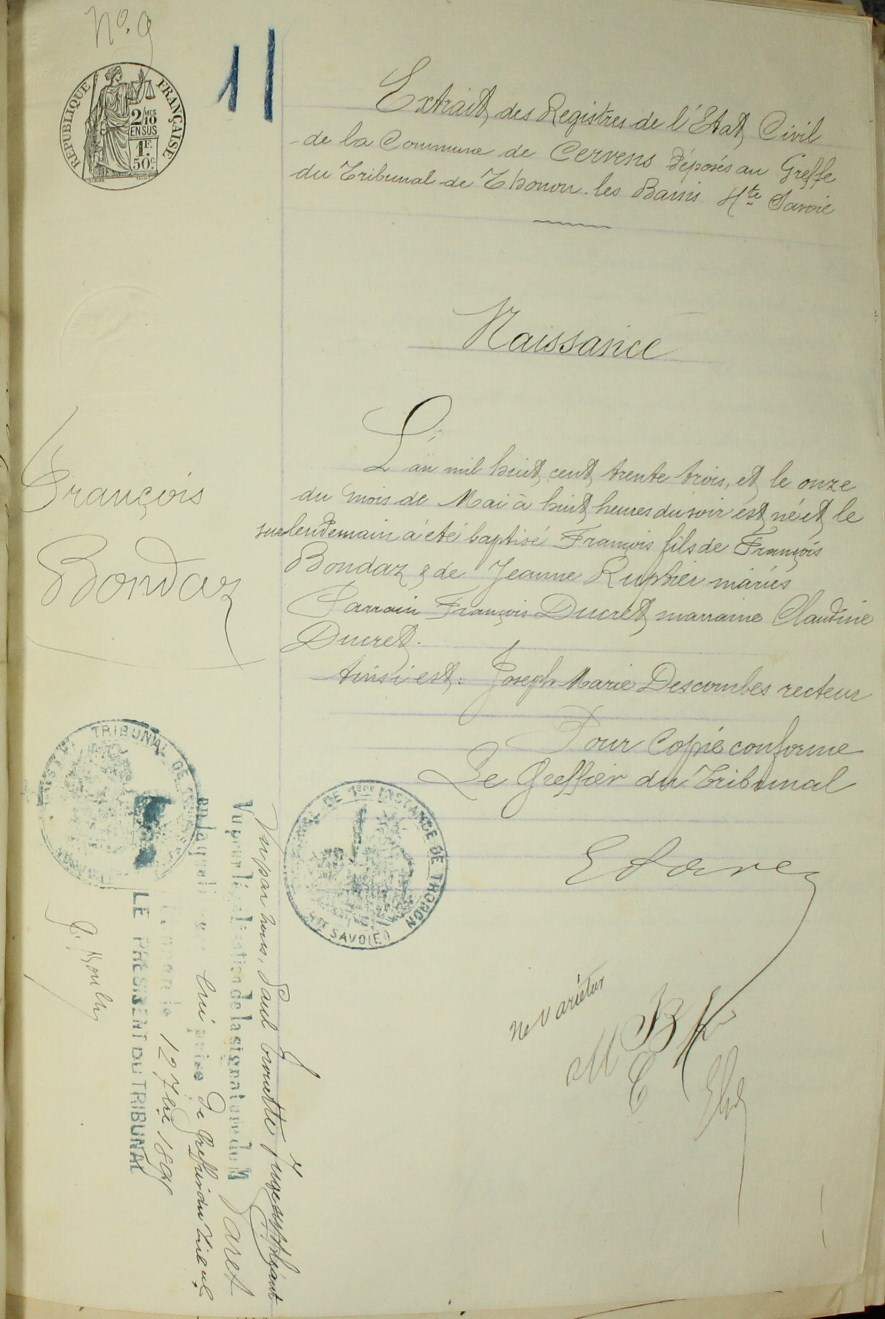 N°. 9
11
RÉPUBLIQUE FRANÇAISE
2/10 EN SUS
1F 50c
Extrait des Registres de l'Etat Civil
de la Commune de Cervens déposés au Greffe
du Tribunal de Thonon-les Bains Hte Savoie
Naissance
François
Bondaz
L'an mil huit cent trente trois, et le onze
du mois de Mai à huit heures du soir est né et le
surlendemain a été baptisé François fils de François
Bondaz & de Jeanne Ruphier mariés
Parrain François Ducret, marraine Claudine
Ducret.
Ainsi est: Joseph Marie Descombes recteur
Pour Copie conforme
Le Greffier du Tribunal
TRIBUNAL DE
TRIBUNAL DE 1ère INSTANCE DE THONON
(Hte SAVOIE)
Vu par nous, Paul juge suppléant
Vu pour légalisation de la signature de M
en laquelle
de Greffier du
le 12 7bre
LE PRÉSIDENT DU TRIBUNAL
Ne Varietur